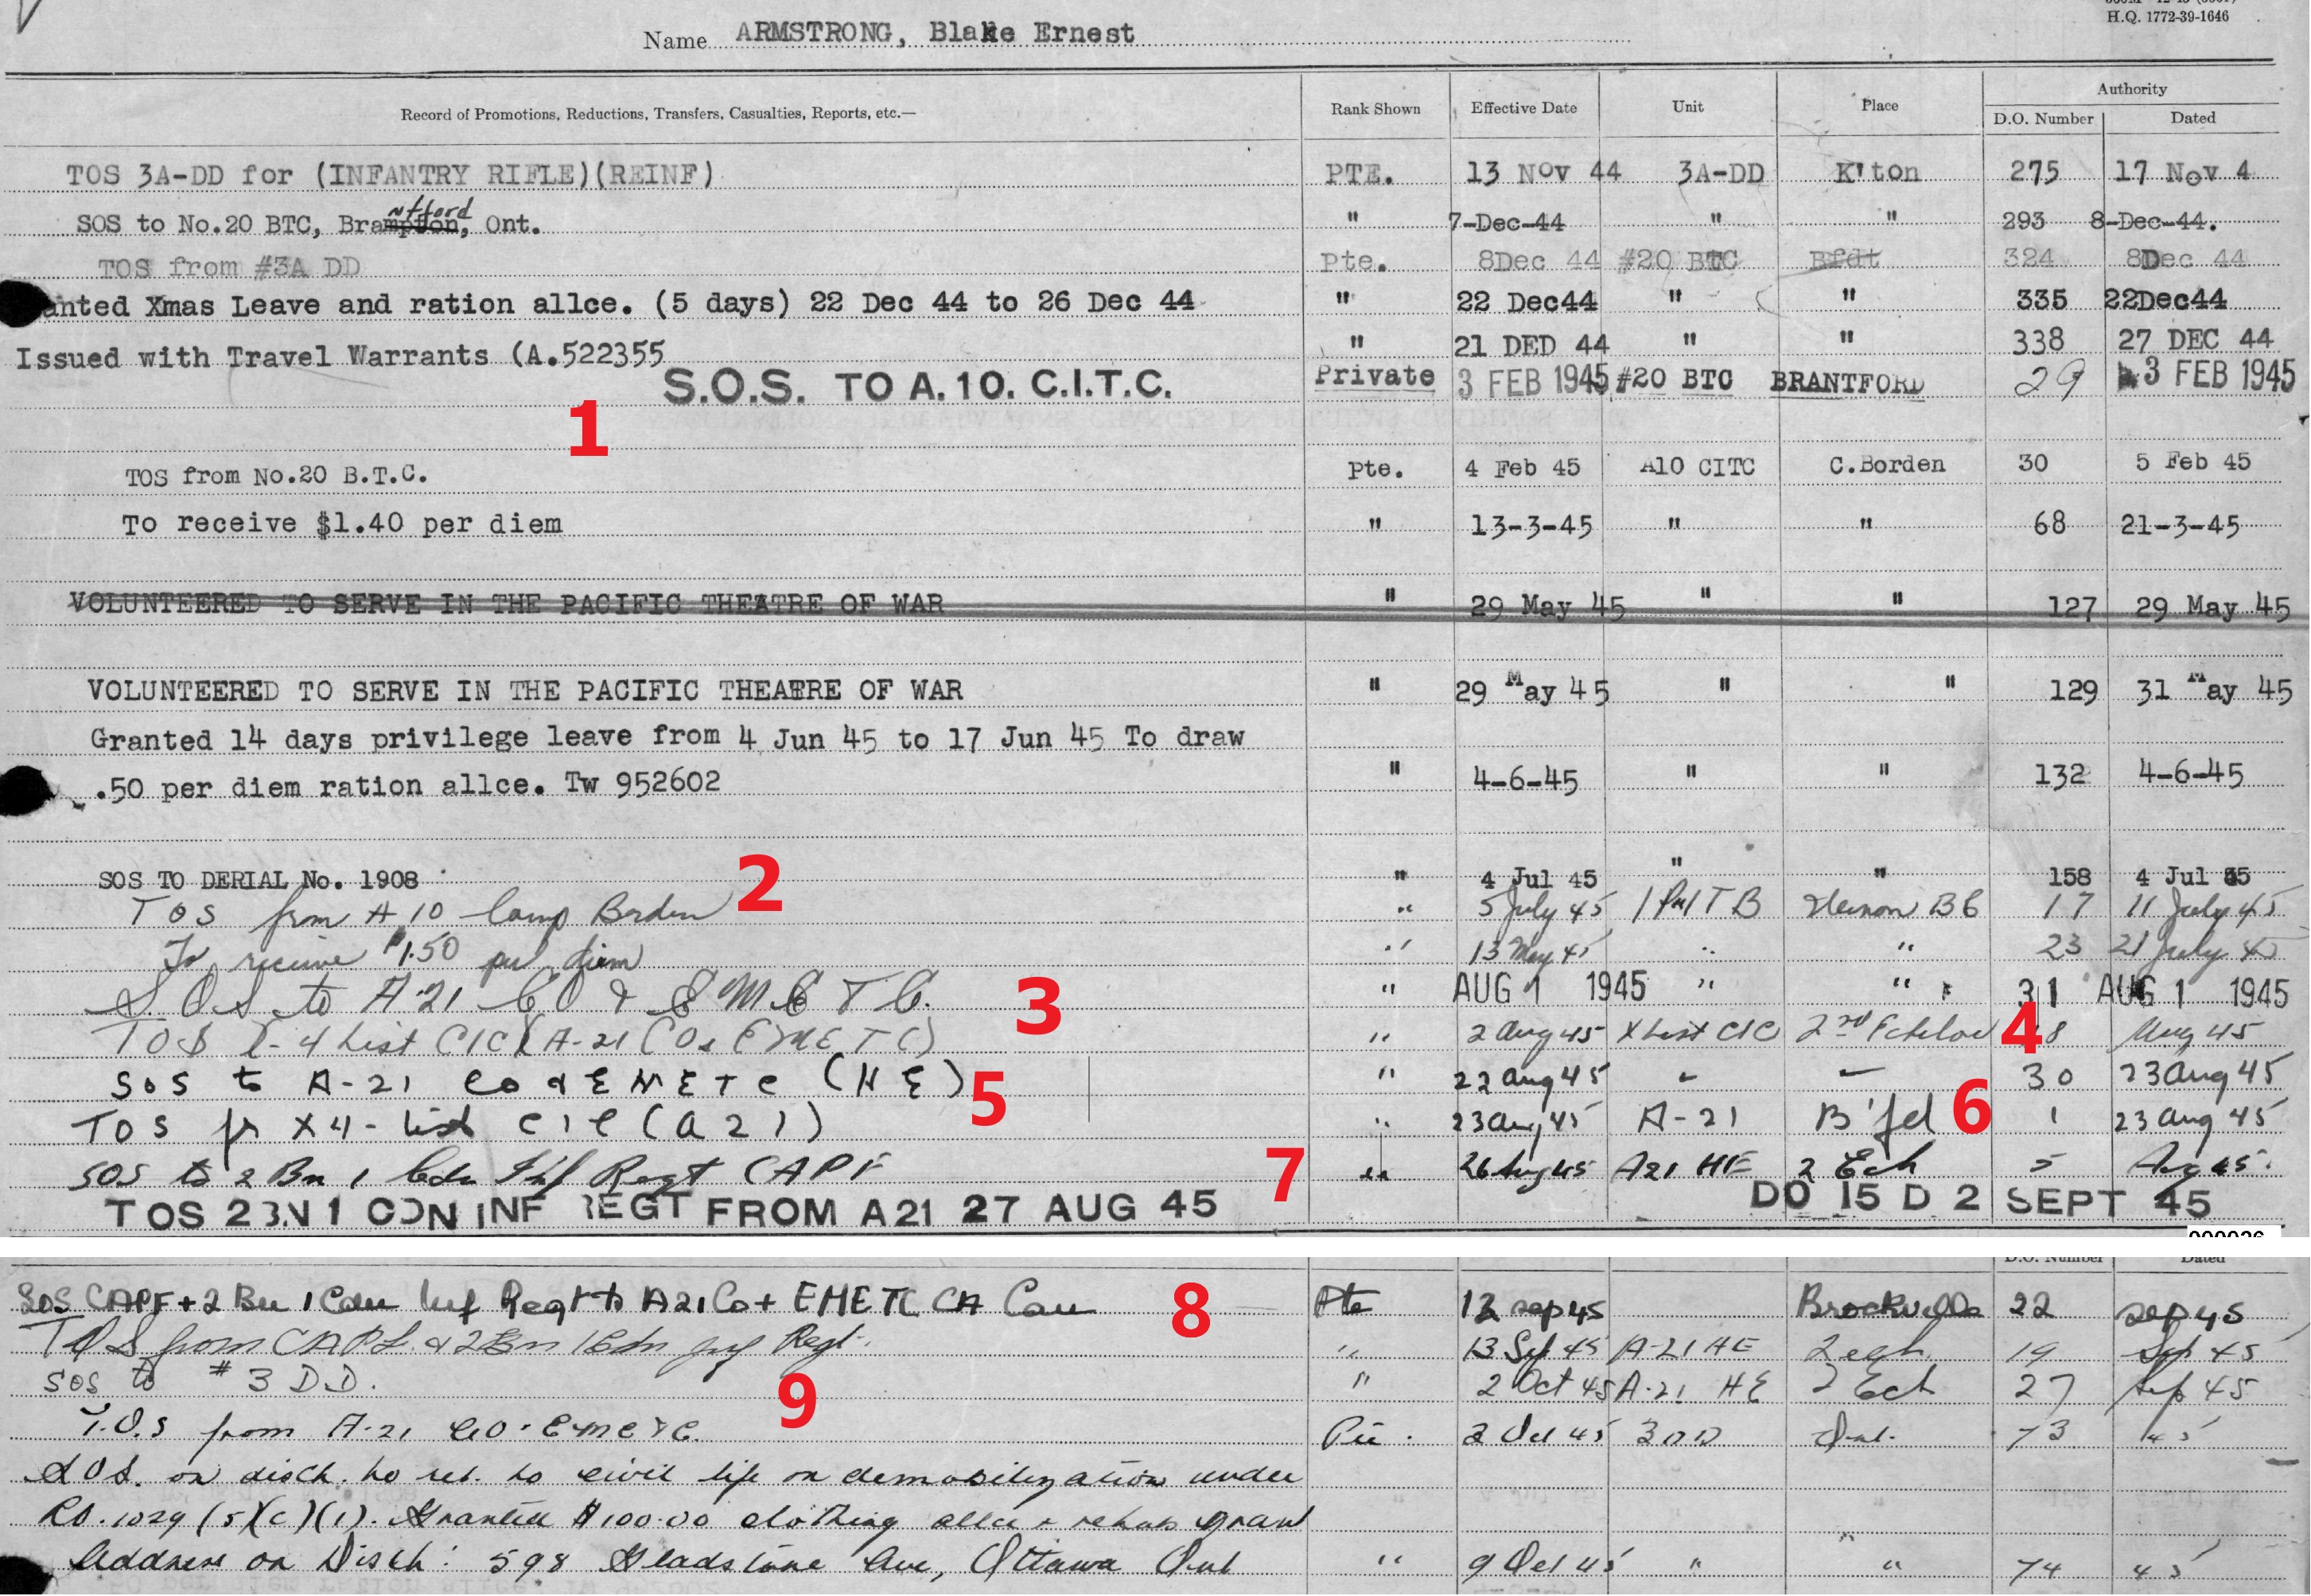 H.Q. 1772-39-1646
Name ARMSTRONG, Blake Ernest
Record of Promotions, Reductions, Transfers, Casualties, Reports, etc.— Rank Shown Effective Date Unit Place Authority
D.O. Number Dated
TOS 3A-DD for (INFANTRY RIFLE)(REINF) PTE. 13 Nov 44 3A-DD K'ton 275 17 Nov 4
ntford
SOS to No.20 BTC, Brampton, Ont. " 7-Dec-44 " " 293 8-Dec-44.
TOS from #3A DD Pte. 8Dec 44 #20 BTC Bfdt 324 8Dec 44
anted Xmas Leave and ration allce. (5 days) 22 Dec 44 to 26 Dec 44 " 22 Dec44 " " 335 22Dec44
Issued with Travel Warrants (A.522355 " 21 DED 44 " " 338 27 DEC 44
S.O.S. TO A.10. C.I.T.C. Private 3 FEB 1945 #20 BTC BRANTFORD 29 3 FEB 1945
1
TOS from No.20 B.T.C. Pte. 4 Feb 45 A10 CITC C.Borden 30 5 Feb 45
To receive $1.40 per diem " 13-3-45 " " 68 21-3-45
VOLUNTEERED TO SERVE IN THE PACIFIC THEATRE OF WAR " 29 May 45 " " 127 29 May 45
VOLUNTEERED TO SERVE IN THE PACIFIC THEATRE OF WAR " 29 May 45 " " 129 31 May 45
Granted 14 days privilege leave from 4 Jun 45 to 17 Jun 45 To draw
.50 per diem ration allce. Tw 952602 " 4-6-45 " " 132 4-6-45
2
SOS TO DERIAL No. 1908 " 4 Jul 45 " " 158 4 Jul 45
TOS from A 10 Camp Borden " 5 July 45 Vernon BC 17 11 July 45
To receive $1.50 per diem " 13 May 45 " " 23 21 July 45
S.O.S. to A.21 CO & EMETC. 3 " AUG 1 1945 " " 31 AUG 1 1945
TOS X-4 List CIC (A-21 CO & EMETC) " 2 Aug 45 X List CIC 2nd Echelon 4 8 Aug 45
SOS to A-21 CO & EMETC (HE) 5 " 22 Aug 45 30 23 Aug 45
TOS fr X4-List CIC (A21) " 23 Aug 45 A-21 B'fd 6 1 23 Aug 45
SOS to 2 Bn 1 Cdn Inf Regt CAPF 7 " 26 Aug 45 A21 HE 2 Ech 5 Aug 45.
TOS 2 BN 1 CDN INF REGT FROM A21 27 AUG 45 DO 15 D 2 SEPT 45
D.O. Number Dated
SOS CAPF + 2 Bn 1 Cdn Inf Regt to A21 Co + EMETC CA Can 8 Pte 12 Sep 45 Brockville 22 Sep 45
TOS from CAPF & 2 Bn 1 Cdn Inf Regt. " 13 Sep 45 A-21 HE 2 ech. 19 Sep 45
SOS to #3 DD. " 2 Oct 45 A-21 HE 2 Ech 27 Sep 45
9
T.O.S from A-21 CO. EMETC. Pte. 3 Oct 45 3 DD Ont. 73 45
SOS. on disch. to ret. to civil life on demobilization under
RO. 1029 (5)(c)(1). Granted $100.00 clothing allce & rehab grant
Address on Disch: 598 Gladstone Ave, Ottawa Ont " 9 Oct 45 " " 74 45